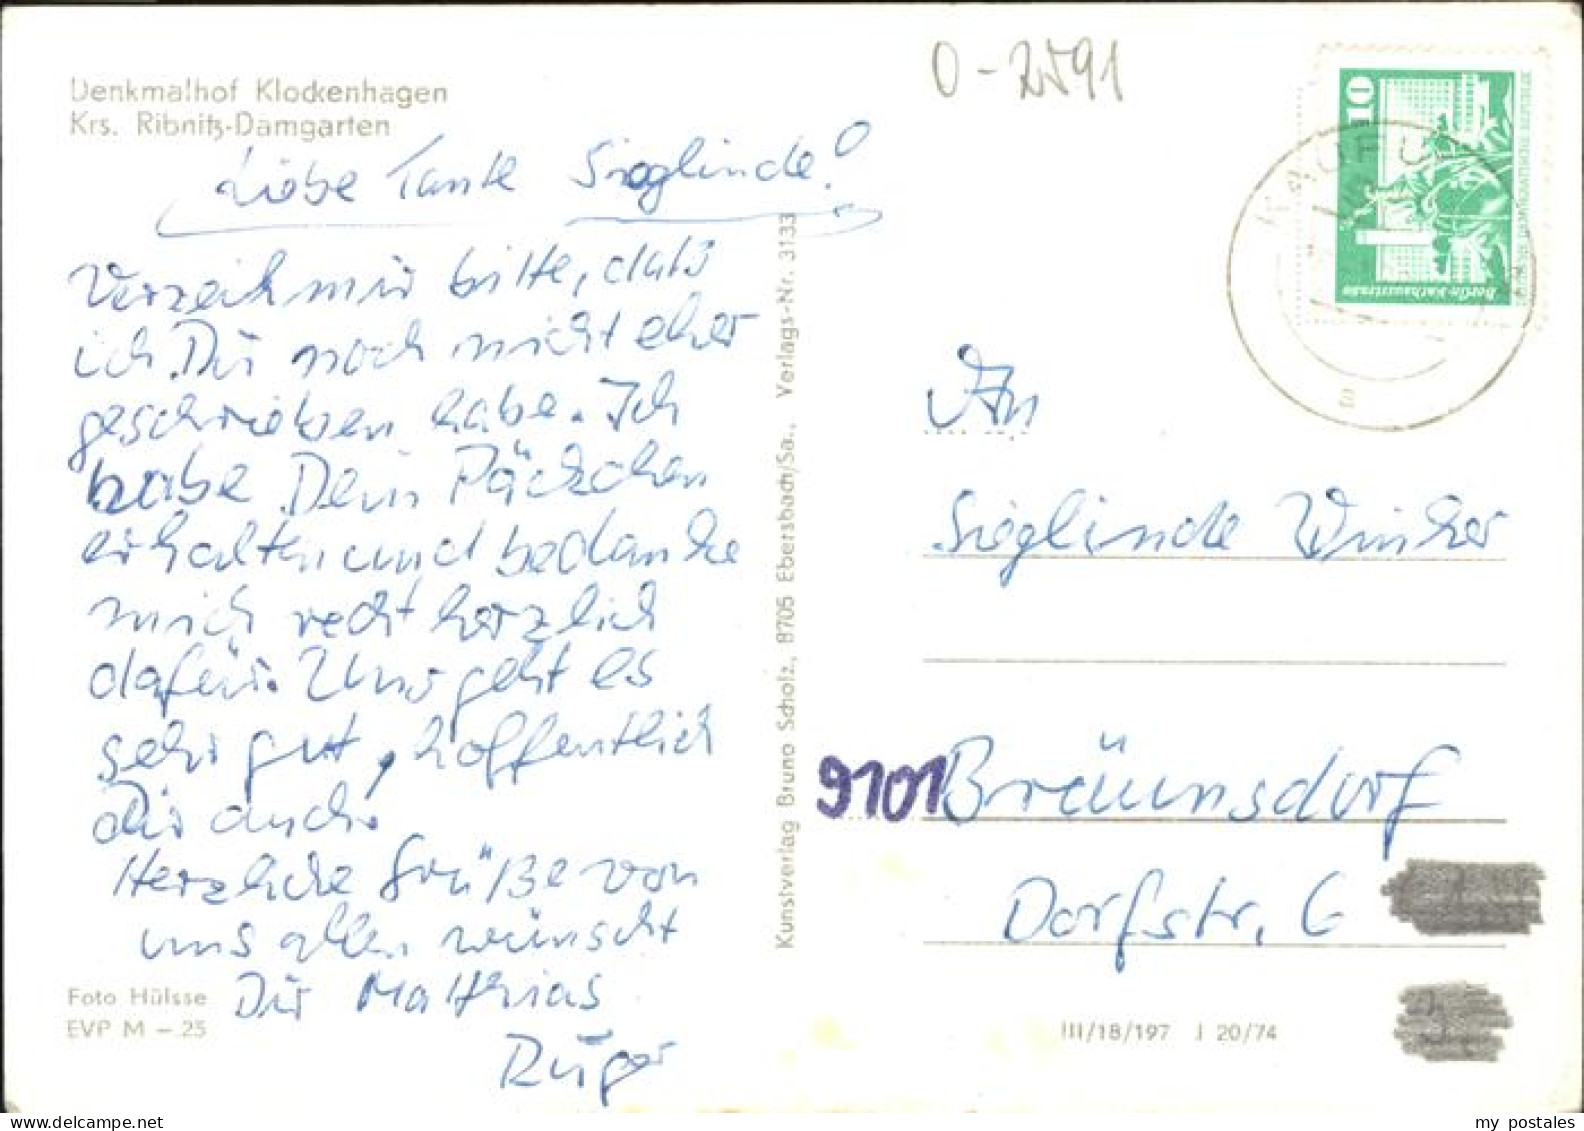 Denkmalhof Klockenhagen
Krs. Ribnitz-Damgarten
Liebe Tante Sieglinde!
Verzeih mir bitte, daß
ich Dir noch nicht eher
geschrieben habe. Ich
habe Dein Päckchen
erhalten und bedanke
mich recht herzlich
dafür. Uns geht es
sehr gut, hoffentlich
Dir auch.
Herzliche Grüße von
uns allen wünscht
Dir Matthias
Rüger
Foto Hülsse
EVP M – 25
Kunstverlag Bruno Scholz, 8705 Ebersbach/Sa., Verlags-Nr. 3133
0-2591
10
Berlin-Rathausstraße
An
Sieglinde Winker
9101 Bräunsdorf
Dorfstr. 6
III/18/197 J 20/74
my postales